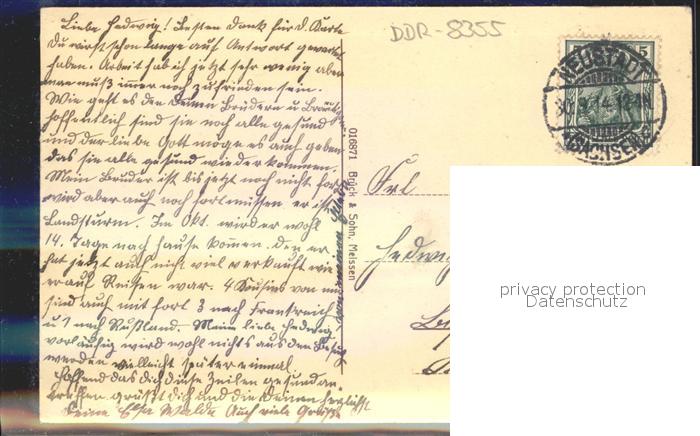 Liebe Hedwig! Besten Dank für d. Karte
Du wirst schon lange auf Antwort gewartet
haben. Arbeit hab ich jetzt sehr wenig aber
man muß immer noch zufrieden sein.
Wie geht es den deinen Brüdern u Bräutigam
hoffentlich sind sie noch alle gesund
und der liebe Gott möge es auch geben
das sie alle gesund wieder kommen.
Mein Bruder ist bis jetzt noch nicht fort
wird aber auch noch fort müssen er ist
Landsturm. Im Okt. wird er wohl
14. Tage nach Hause kommen. den er
hat jetzt auch nicht viel verkauft wie
er auf Reisen war. 4 Kousins von uns
sind auch mit fort 3 nach Frankreich
u 1 nach Rußland. Meine liebe Hedwig
vorläufig wird wohl nichts aus den Besuch
werden vielleicht später einmal
Hoffend das dich diese Zeilen gesund an-
treffen grüßt dich und die Deinen herzlichst
Deine Elsa Auch viele Grüße
von meinen
DDR-8355
5
NEUSTADT
30.9.14.
(SACHSEN)
016871 Brück & Sohn, Meissen
Frl
Hedwig
privacy protection
Datenschutz